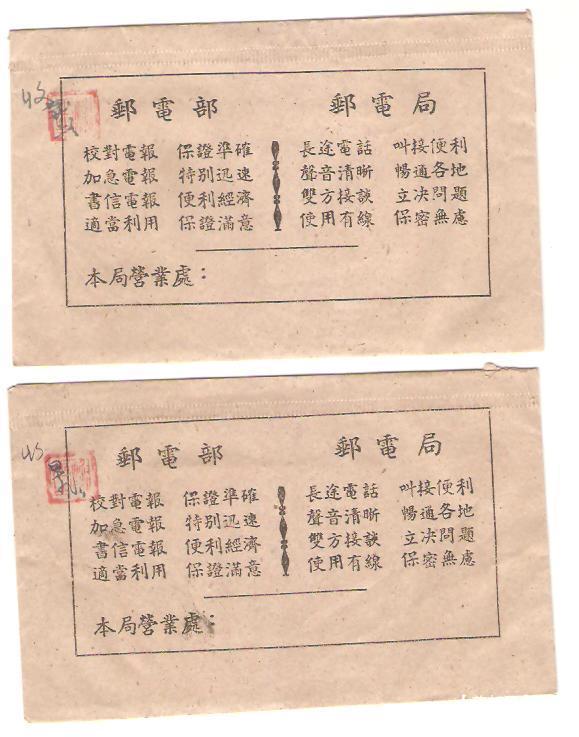 收
郵電部 郵電局
校對電報 保證準確 長途電話 叫接便利
加急電報 特別迅速 聲音清晰 暢通各地
書信電報 便利經濟 雙方接談 立决問題
適當利用 保證滿意 使用有線 保密無慮
本局營業處：
收
郵電部 郵電局
校對電報 保證準確 長途電話 叫接便利
加急電報 特別迅速 聲音清晰 暢通各地
書信電報 便利經濟 雙方接談 立决問題
適當利用 保證滿意 使用有線 保密無慮
本局營業處：